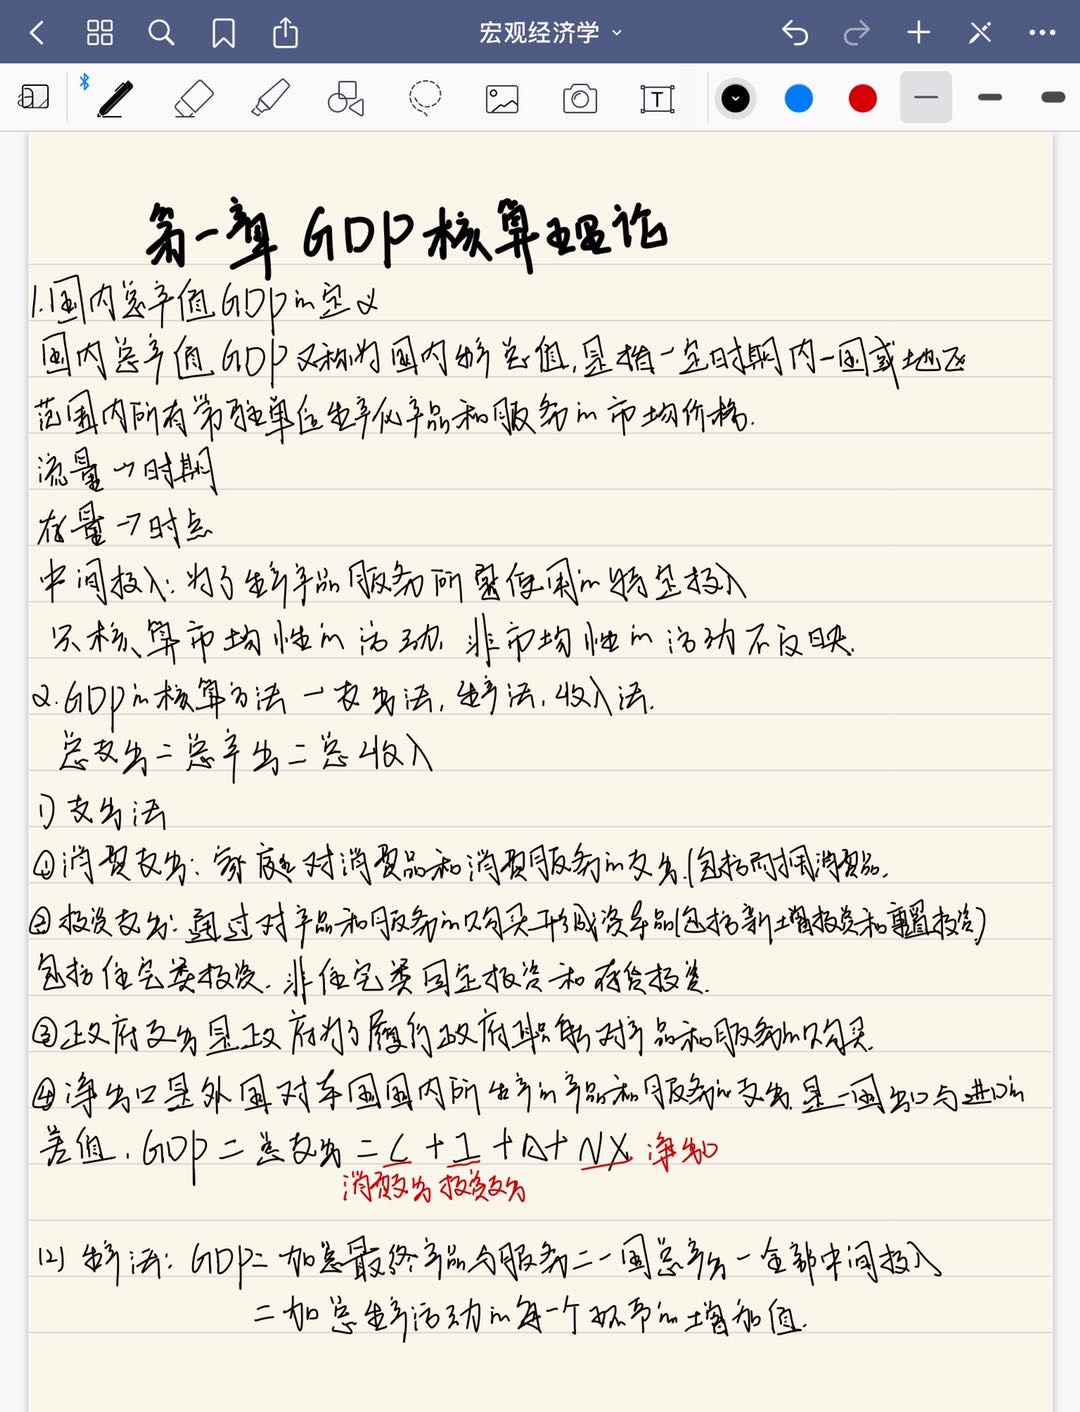 宏观经济学
T
第一章 GDP核算理论
1.国内总产值GDP的定义
国内总产值GDP又称为国内生产总值,是指一定时期内一国或地区
范围内所有常驻单位生产化产品和服务的市均价格.
流量→时期
存量→时点
中间投入:为了生产产品服务所需使用的特定投入
只核算市均性的活动,非市均性的活动不反映.
2.GDP的核算方法一支出法,生产法,收入法.
总支出=总产出=总收入
1)支出法
①消费支出:家庭对消费品和消费服务的支出.(包括耐用消费品.
②投资支出:通过对产品和服务的购买形成资本品(包括新增投资和重置投资)
包括住宅类投资.非住宅类固定投资和存货投资.
③政府支出是政府为了履行政府职能对产品和服务的购买.
④净出口是外国对本国国内所生产的产品和服务的支出.是一国出口与进口的
差值.GDP=总支出=C+I+G+NX 净出口
消费支出 投资支出
(2)生产法:GDP=加总最终产品与服务=一国总产出-全部中间投入
=加总生产活动的每一个环节的增加值.